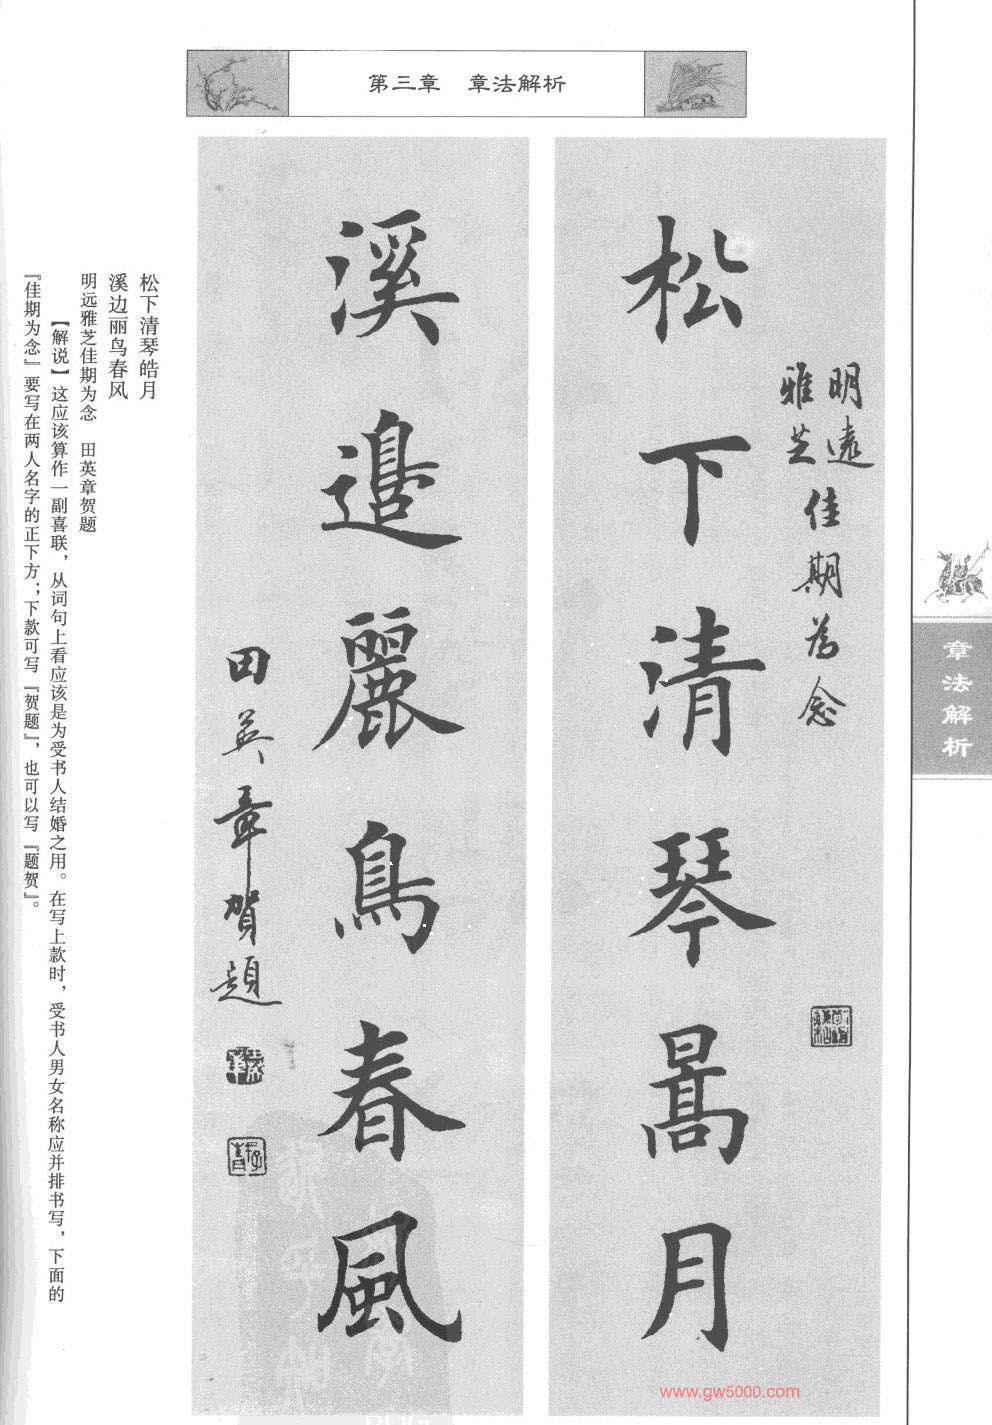 第三章 章法解析
松下清琴暠月
明遠
雅芝
佳期為念
溪邉麗鳥春風
田英章賀題
松下清琴皓月
溪边丽鸟春风
明远雅芝佳期为念 田英章贺题
【解说】这应该算作一副喜联，从词句上看应该是为受书人结婚之用。在写上款时，受书人男女名称应并排书写，下面的
『佳期为念』要写在两人名字的正下方；下款可写『贺题』，也可以写『题贺』。
章法解析
www.gw5000.com